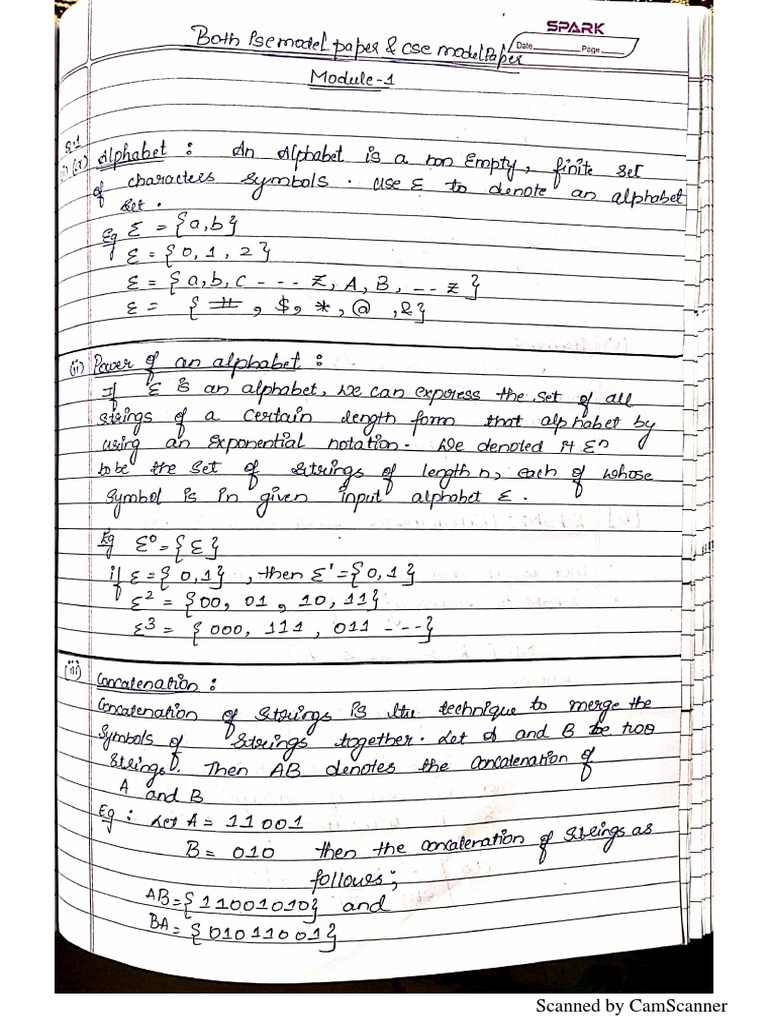 SPARK
Both Ise model paper & cse model Paper
Date Page
Module-1
Q.1
(i) (a) Alphabet : An Alphabet is a non Empty, finite set
of characters symbols. use Ɛ to denote an alphabet
set.
Eg Ɛ = {a,b}
Ɛ = {0, 1, 2}
Ɛ = {a,b,c --- z, A, B, -- z}
Ɛ = {#, $, *, @ ,&}
(ii) Power of an alphabet :
If Ɛ is an alphabet, we can express the set of all
strings of a certain length form that alphabet by
using an exponential notation. We denoted it Ɛⁿ
to be the set of strings of length n, each of whose
symbol is in given input alphabet Ɛ.
Eg Ɛ⁰ = {Ɛ}
if Ɛ = {0,1} , then Ɛ¹ = {0,1}
Ɛ² = {00, 01, 10, 11}
Ɛ³ = {000, 111, 011 ----}
(iii) Concatenation :
Concatenation of strings is the technique to merge the
symbols of strings together. Let A and B be two
strings. Then AB denotes the concatenation of
A and B
Eg : Let A = 11001
B = 010 then the concatenation of strings as
follows;
AB = {11001010} and
BA = {01011001}
Scanned by CamScanner